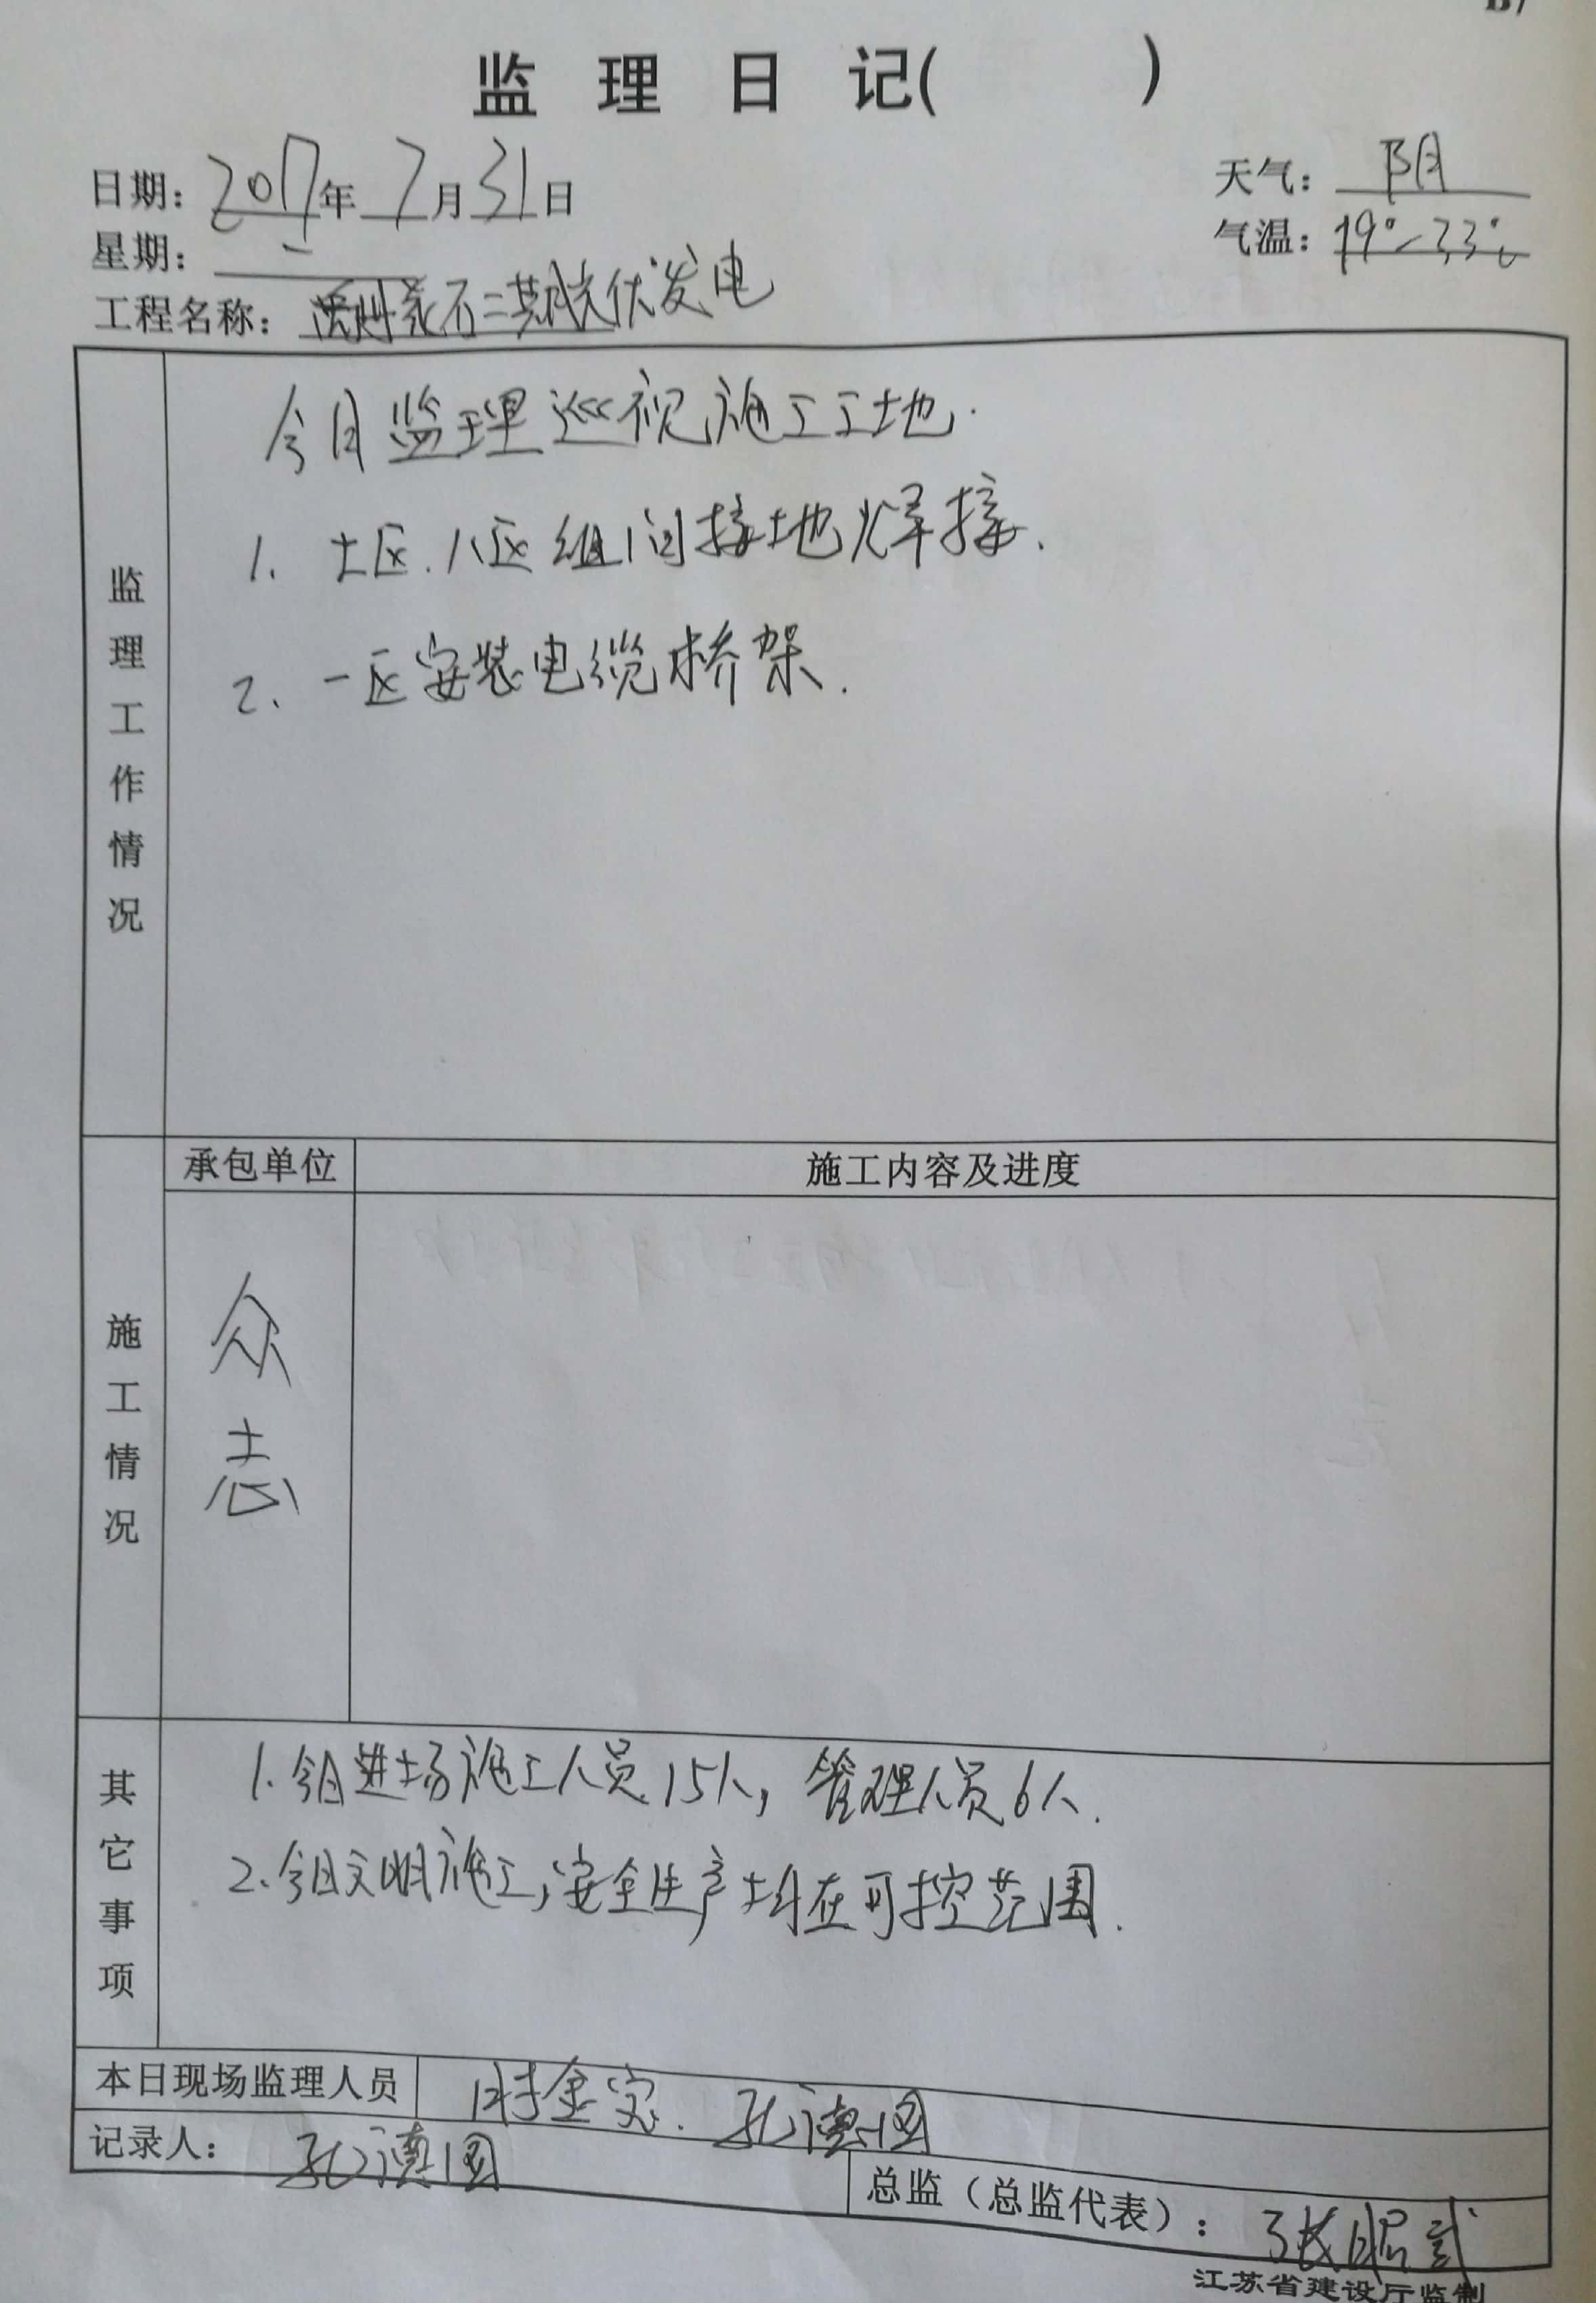 B7
监理日记( )
日期: 2017年7月31日 天气: 阴
星期: 二 气温: 19°~33℃
工程名称: 石二期光伏发电
今日监理巡视施工工地.
1. 七区.八区组间接地焊接.
2、一区安装电缆桥架.
监理工作情况
承包单位 施工内容及进度
众志
施工情况
1.今日进场施工人员15人, 管理人员6人.
2.今日文明施工,安全生产均在可控范围.
其它事项
本日现场监理人员 时金宝. 孔德国
记录人: 孔德国
总监(总监代表): 张昭武
江苏省建设厅监制